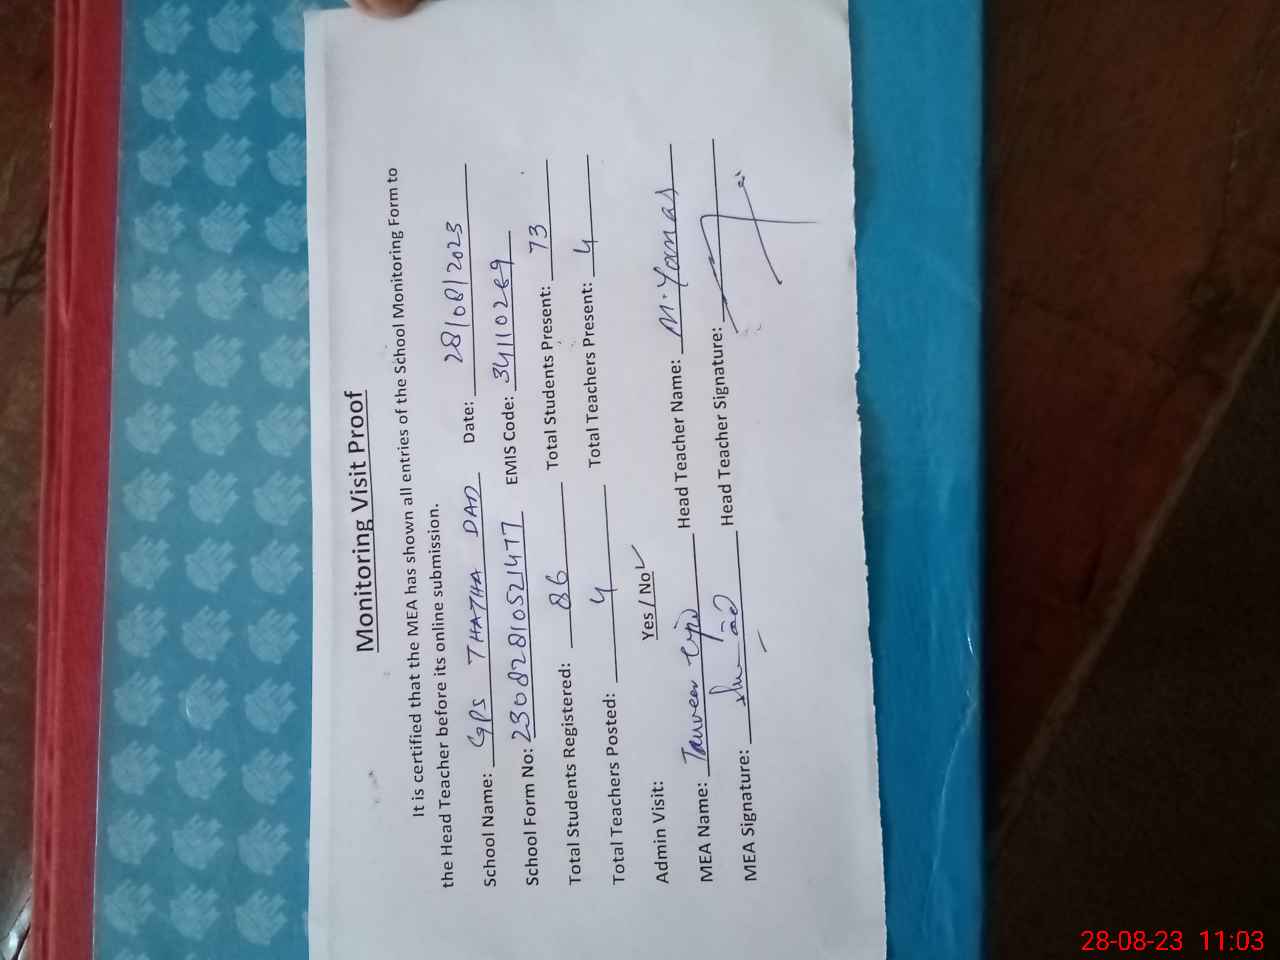 Monitoring Visit Proof
It is certified that the MEA has shown all entries of the School Monitoring Form to
the Head Teacher before its online submission.
School Name: GPS THATHA DAD Date: 28/08/2023
School Form No: 23082810521477 EMIS Code: 34110269
Total Students Registered: 86 Total Students Present: 73
Total Teachers Posted: 4 Total Teachers Present: 4
Admin Visit: Yes / No ✓
MEA Name: Head Teacher Name: M. Younas
MEA Signature: Head Teacher Signature:
28-08-23 11:03